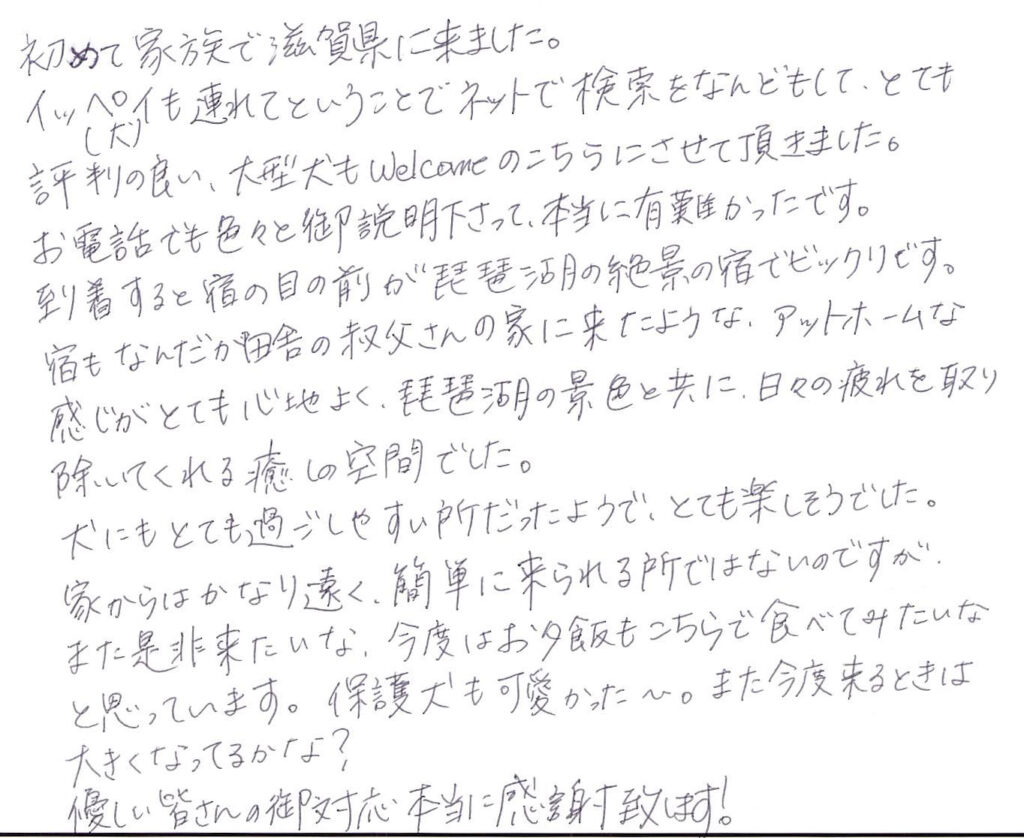 初めて家族で滋賀県に来ました。
イッペイも連れてということでネットで検索をなんどもして、とても
(犬)
評判の良い、大型犬もWelcomeのこちらにさせて頂きました。
お電話でも色々と御説明下さって、本当に有難かったです。
到着すると宿の目の前が琵琶湖の絶景の宿でビックリです。
宿もなんだか田舎の叔父さんの家に来たような、アットホームな
感じがとても心地よく、琵琶湖の景色と共に、日々の疲れを取り
除いてくれる癒しの空間でした。
犬にもとても過ごしやすい所だったようで、とても楽しそうでした。
家からはかなり遠く、簡単に来られる所ではないのですが、
また是非来たいな、今度はお夕飯もこちらで食べてみたいな
と思っています。保護犬も可愛かった〜。また今度来るときは
大きくなってるかなよ?
優しい皆さんの御対応本当に感謝致します!